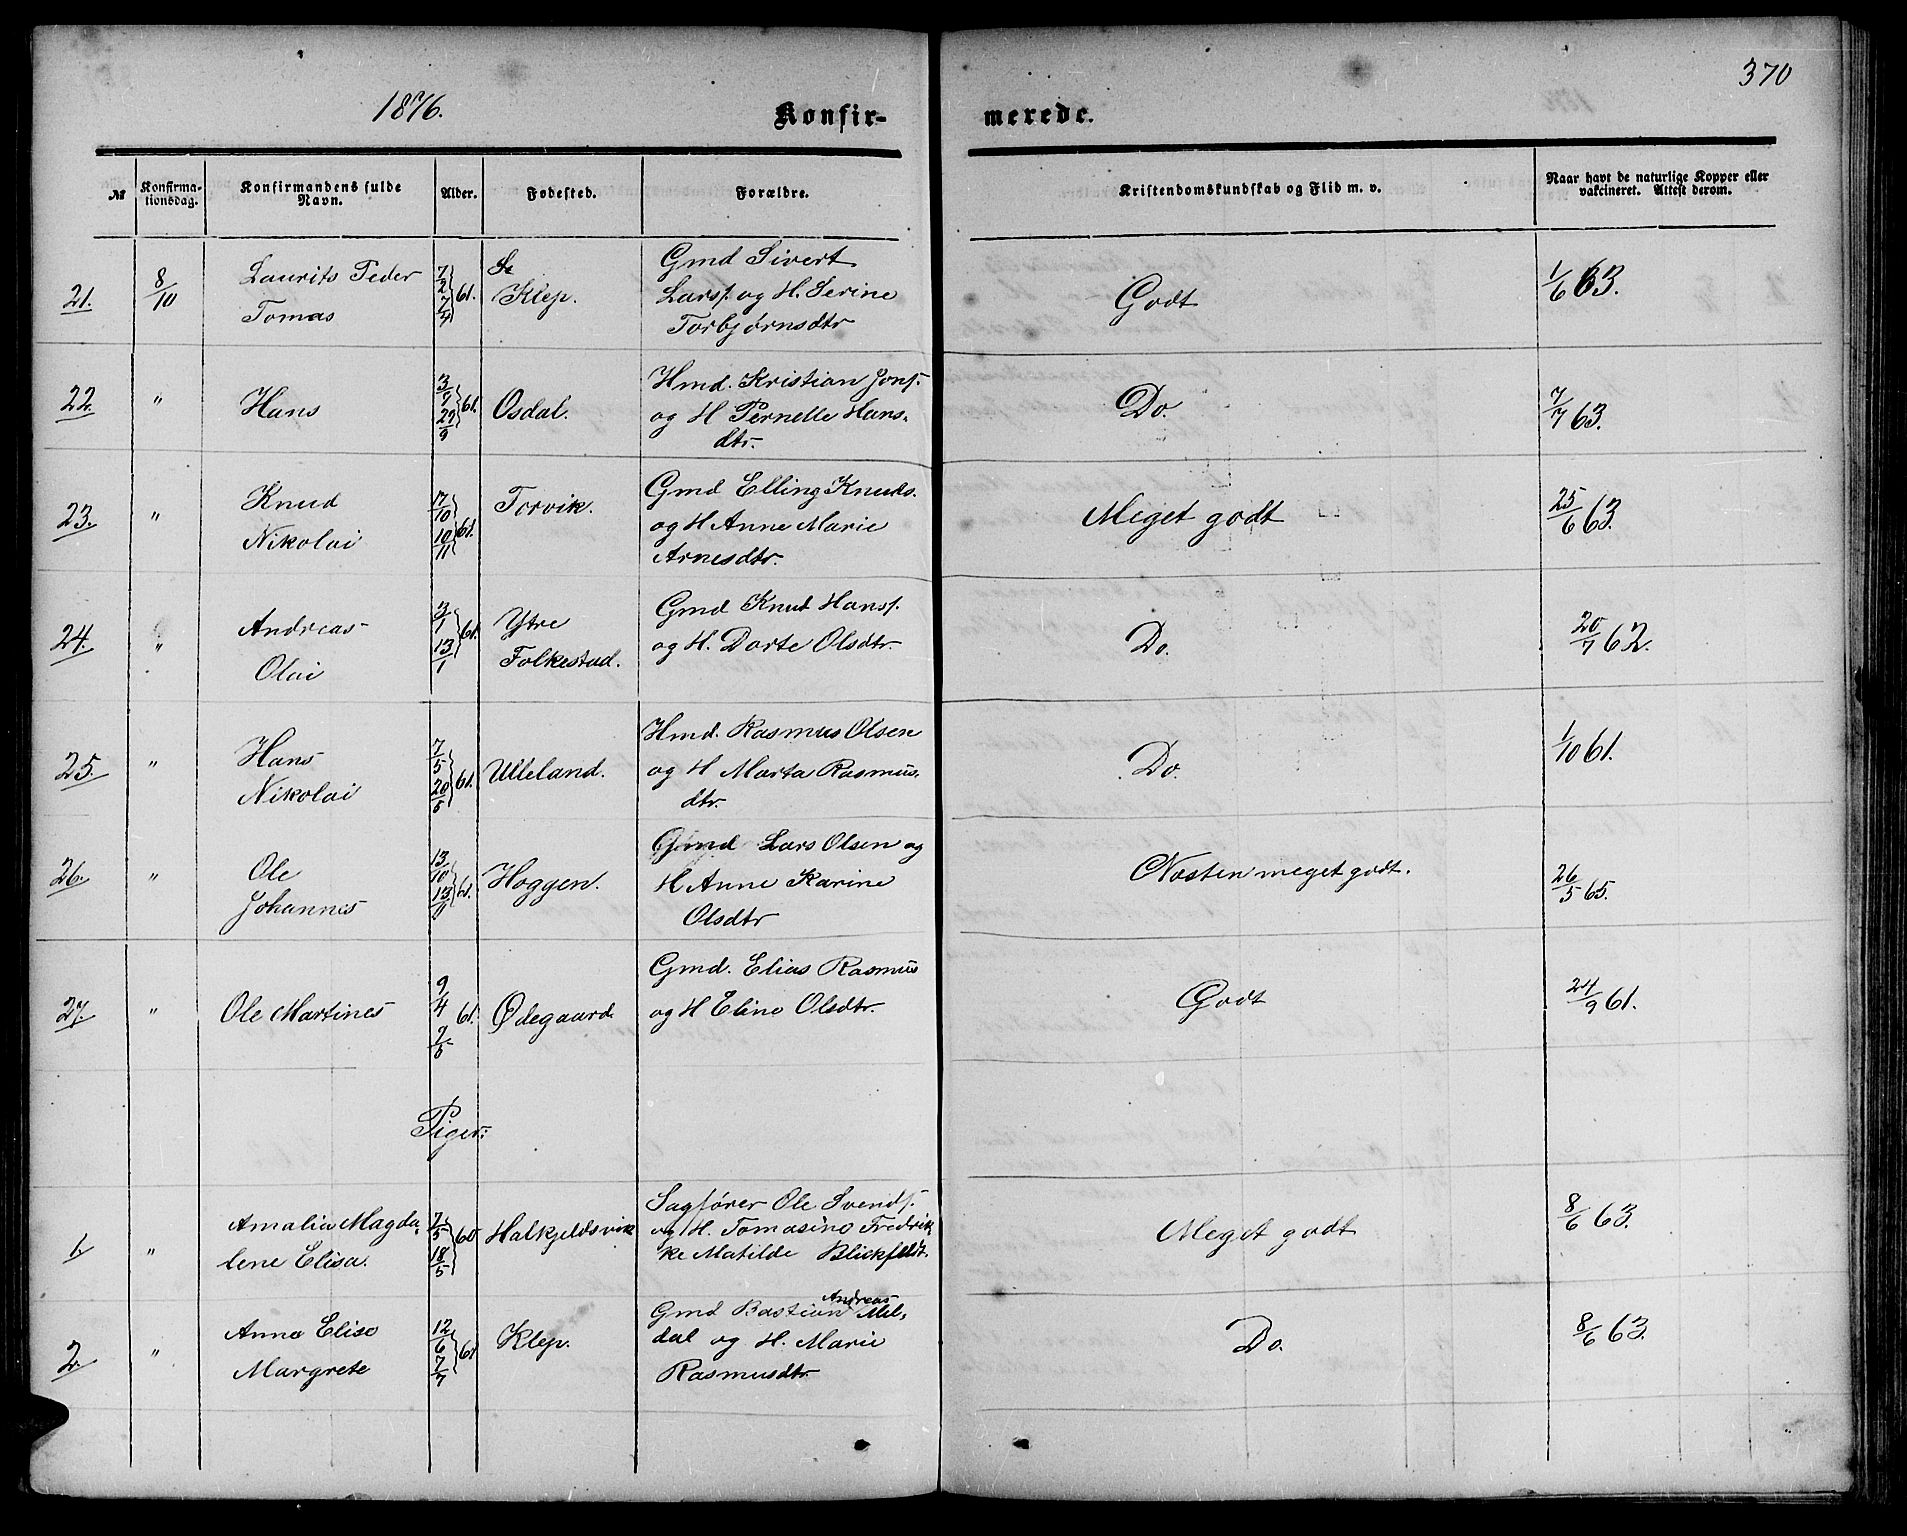 370
1876.
Konfir- merede.
№ Konfirma-tionsdag. Konfirmandens fulde Navn. Alder. Fødested. Forældre. Kristendomskundskab og Flid m. v. Naar havt de naturlige Kopper eller vakcineret. Attest derom.
21. 8/10 Laurits Peder Tomas 7/2 7/4 61. Klep. Gmd Sivert Larsf. og H. Serine Torbjørnsdtr Godt 1/6 63.
22. " Hans 3/9 29/9 61. Osdal. Hmd. Kristian Jonsf. og H Pernelle Hans-dtr. Do. 7/7 63.
23. " Knud Nikolai 17/10 10/11 61. Torvik. Gmd Elling Knuds. og H Anne Marie Arnesdtr. Meget godt 25/6 63.
24. " Andreas Olai 3/1 13/1 61. Ytre Folkestad. Gmd Knut Hansf. og H. Dorte Olsdtr. Do. 20/7 62.
25. " Hans Nikolai 7/5 20/5 61. Ulleland. Hmd. Rasmus Olsen og H Marta Rasmus-dtr. Do. 1/10 61.
26. " Ole Johannes 13/10 13/11 61. Hoggen. Gmd Lars Olsen og H Anne Karine Olsdtr Næsten meget godt. 26/5 65.
27. " Ole Martines 9/4 2/5 61. Ødegaard. Gmd. Elias Rasmus og H Eline Olsdtr. Godt 24/9 61.
Piger:
1. " Amalia Magda-lene Elisa. 7/5 18/5 60 Halkjeldsvik Sagfører Ole Svendsf. og H. Tomasine Fredrik-ke Matilde Blickfeldt. Meget godt 8/6 63.
2. " Anna Elise Margrete 12/6 7/7 61 Klep. Gmd Bastian Andreas Mel-dal og H. Marie Rasmusdtr. Do. 8/6 63.